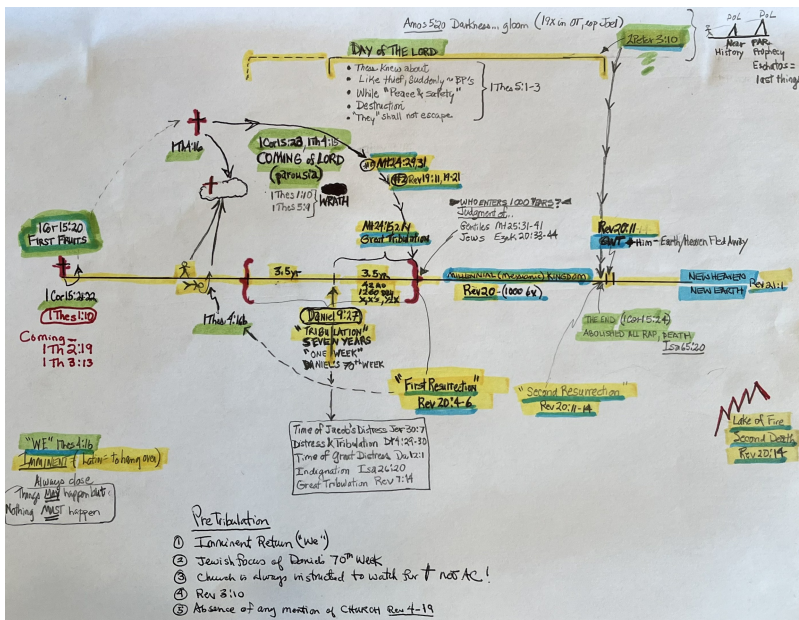 Amos 5:20 Darkness... gloom (19x in OT, esp Joel)
DAY OF THE LORD
• These knew about
• Like thief, Suddenly ~ BP's
• While "Peace & safety"
• Destruction
• "They" shall not escape
1 Thes 5:1-3
2 Peter 3:10
DoL DoL
Near FAR
History Prophecy
Eschatos =
last thing
1Th 4:16
1 Cor 15:23, 1Th 4:15
COMING of LORD
(parousia)
1 Thes 1:10
1 Thes 5:9
WRATH
#1 Mt 24:29,31
#2 Rev 19:11, 19-21
1 Cor 15:20
FIRST FRUITS
Mt 24:15,21
Great Tribulation
WHO ENTERS 1000 YEARS?
Judgment of...
Gentiles Mt 25:31-41
Jews Ezek 20:33-44
Rev 20:11
GWT Him - Earth/Heaven Fled Away
3.5 yr
3.5 yr
42 mo
1260 day
MILLENNIAL (Messianic) KINGDOM
Rev 20 - (1000 6x)
NEW HEAVEN
NEW EARTH
Rev 21:1
1 Cor 15:21-22
1 Thes 1:10
Coming -
1 Th 2:19
1 Th 3:13
1 Thes 4:16
Daniel 9:27
"TRIBULATION"
SEVEN YEARS
"ONE WEEK"
DANIEL'S 70th WEEK
THE END (1 Cor 15:24)
ABOLISHED ALL RAP, DEATH
Isa 65:20
"First Resurrection"
Rev 20:4-6
"Second Resurrection"
Rev 20:11-14
Lake of Fire
Second Death
Rev 20:14
Time of Jacob's Distress Jer 30:7
Distress & Tribulation Dt 4:29-30
Time of Great Distress Da 12:1
Indignation Isa 26:20
Great Tribulation Rev 7:14
"WE" 1 Thes 4:16
IMMINENT (Latin = to hang over)
Always close
Things MAY happen but
Nothing MUST happen
PreTribulation
① Imminent Return ("We")
② Jewish focus of Daniel's 70th Week
③ Church is always instructed to watch for † not AC!
④ Rev 3:10
⑤ Absence of any mention of CHURCH Rev 4-19